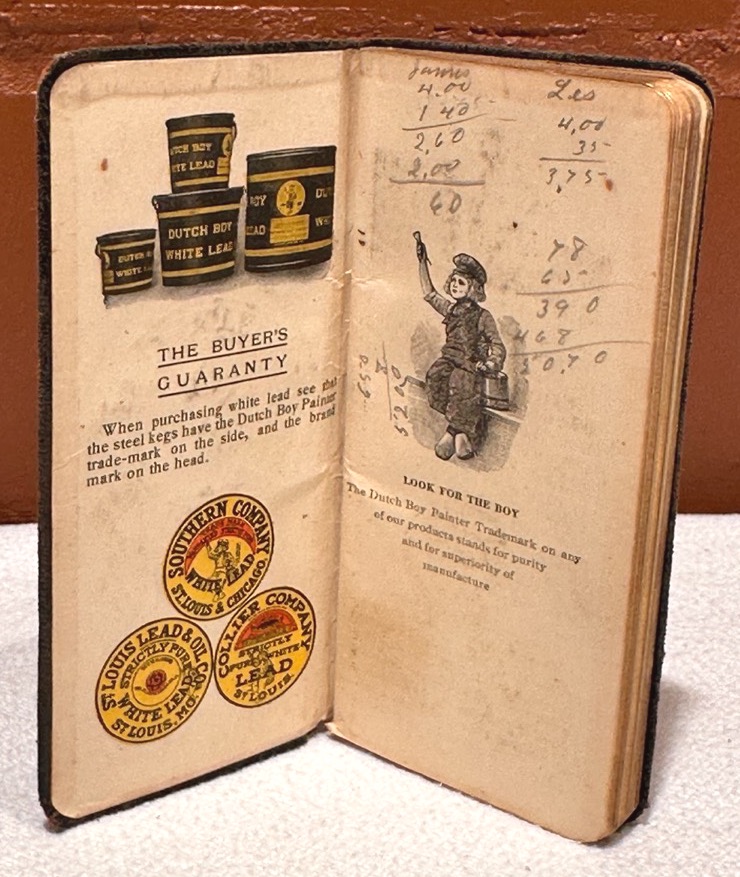 DUTCH BOY
WHITE LEAD
DUTCH BOY
WHITE LEAD
THE BUYER'S
GUARANTY
When purchasing white lead see that
the steel kegs have the Dutch Boy Painter
trade-mark on the side, and the brand
mark on the head.
SOUTHERN COMPANY
WHITE LEAD
ST. LOUIS & CHICAGO
ST. LOUIS LEAD & OIL CO.
STRICTLY PURE
WHITE LEAD
ST. LOUIS, MO.
COLLIER COMPANY
STRICTLY
PURE WHITE
LEAD
ST LOUIS.
James
4.00
1 40
2,60
2,00
60
Les
4,00
35
3,75
78
65
390
468
50,70
LOOK FOR THE BOY
The Dutch Boy Painter Trademark on any
of our products stands for purity
and for superiority of
manufacture